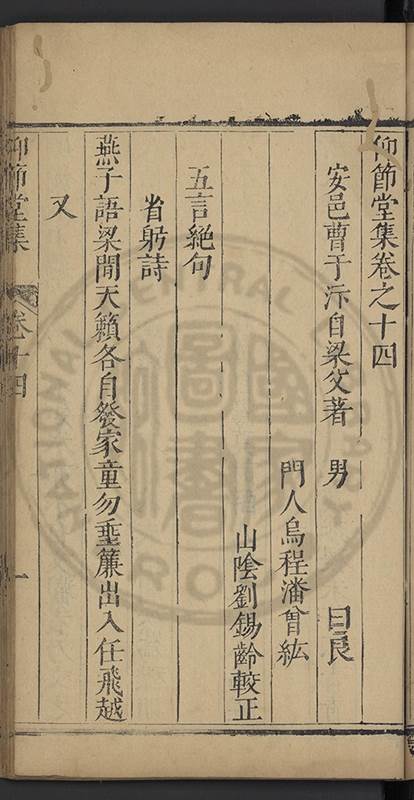 仰節堂集卷之十四
安邑曹于汴自梁父著 男 曰良
門人烏程潘曾紘
山陰劉錫齡較正
五言絶句
省躬詩
燕子語梁間天籟各自發家童勿垂簾出入任飛越
又
仰節堂集 卷十四 一